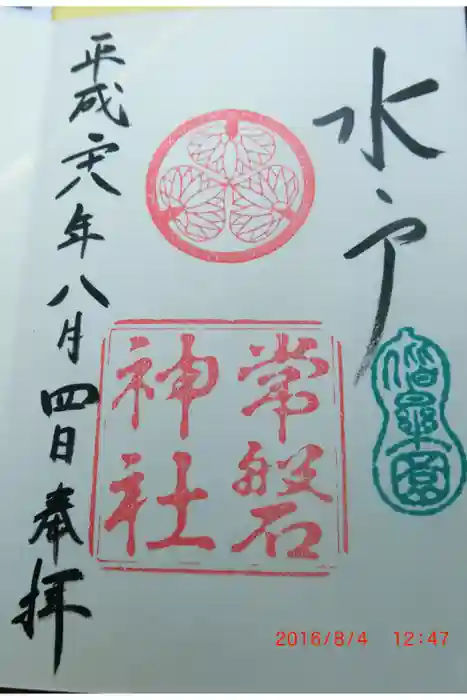 水戸
偕楽園
常磐
神社
平成二十八年八月四日奉拝
2016/8/4 12:47